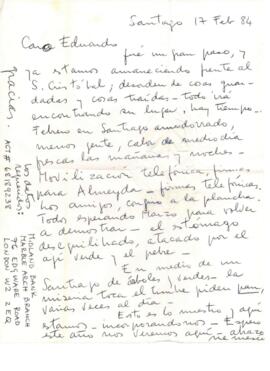 Santiago 17 Feb 84
Caro Eduardo
fué un gran paso, y
ya estamos amaneciendo frente al
S. Cristóbal, desorden de cosas guar-
dadas y cosas traídas - todo irá
encontrando su lugar, hay tiempo -
Febrero en Santiago amodorrado,
menos gente, calor de mediodía
frescas las mañanas y noches -
Movilización telefónica, firmes
para Almeyda - firmes telefónicas.
los amigos, congrio a la plancha.
Todos esperando Marzo para volver
a demostrar - el estómago
desequilibrado, atacado por el
ají verde y el pebre -
En medio de un
Santiago de árboles verdes - la
miseria toca el timbre piden pan,
varias veces al día -
Esto es lo nuestro y aquí
estamos - incorporandonos - Espero
este año nos veremos aquí - abrazo
gracias.
nos datos
MIDLAND BANK
MARBLE ARCH BRANCH
EDGWARE ROAD
LONDON W2 2EQ
ACT # 68189238